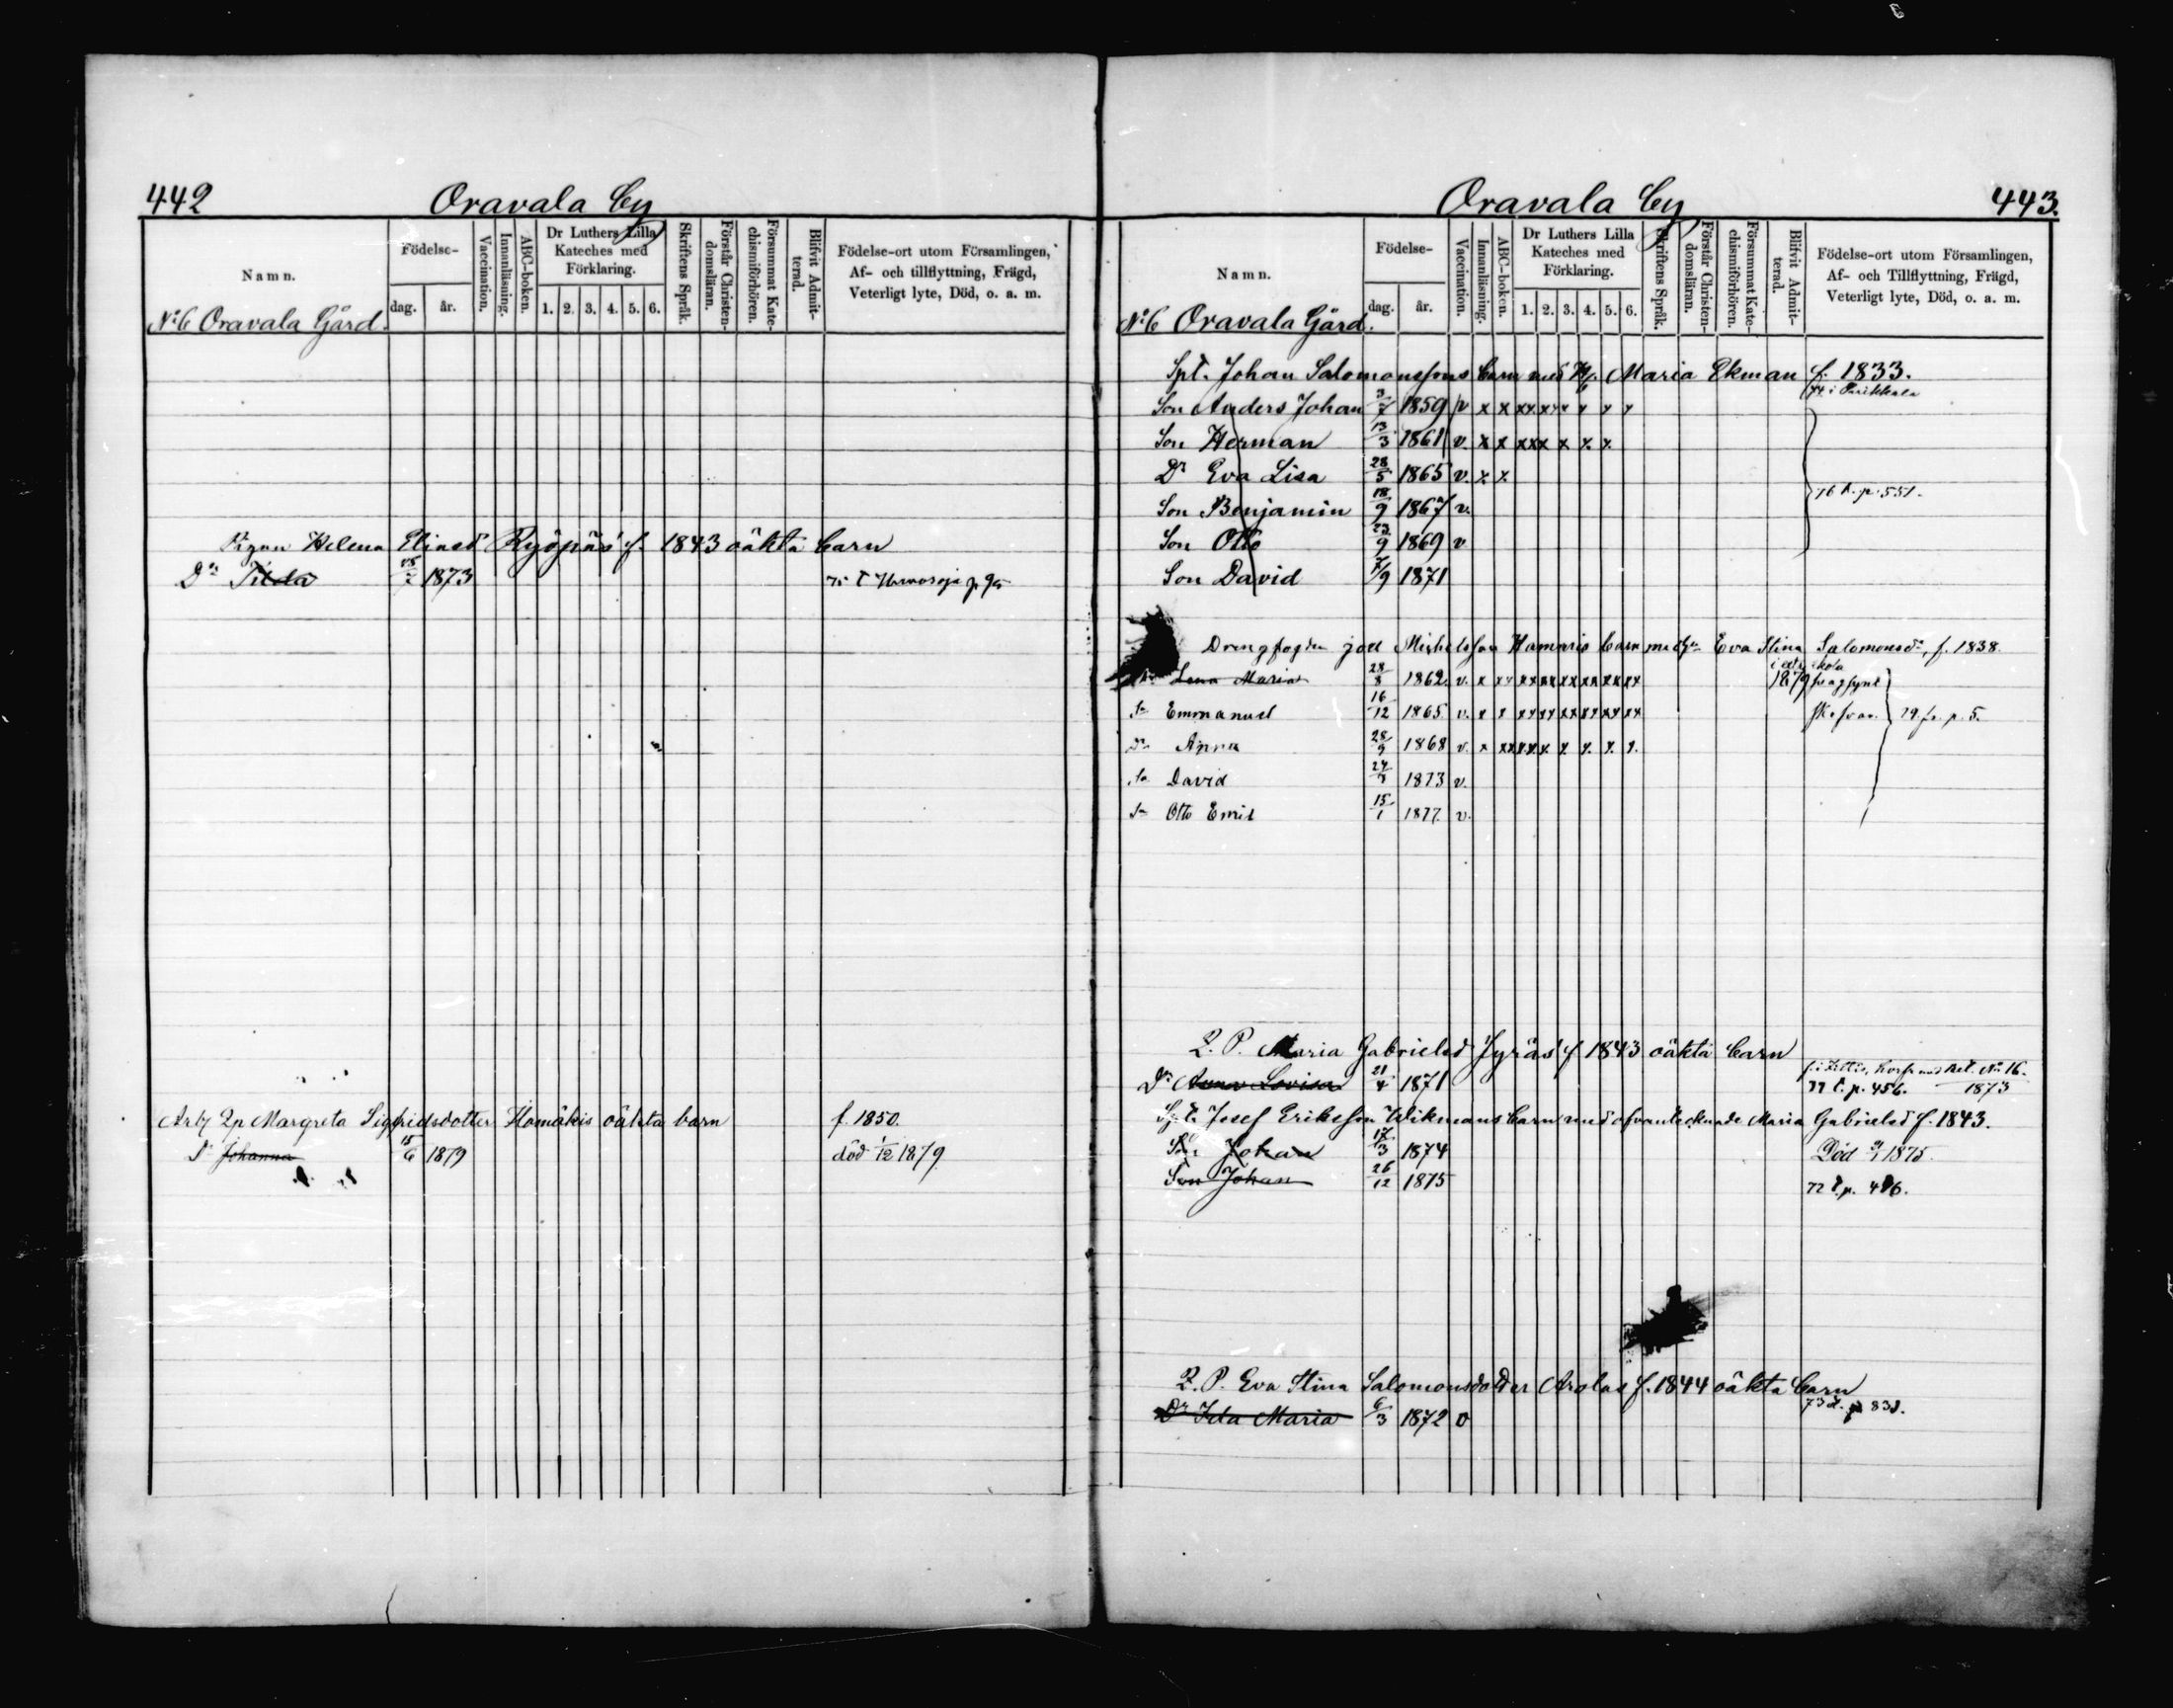 442 Oravala by
Namn. Födelse- dag. år. Vaccination. Innanläsning. ABC-boken. Dr Luthers Lilla Kateches med Förklaring. 1. 2. 3. 4. 5. 6. Skriftens Språk. Förstår Christen-domsläran. Försummat Kate-chismiförhören. Blifvit Admit-terad. Födelse-ort utom Församlingen, Af- och tillflyttning, Frägd, Veterligt lyte, Död, o. a. m.
No 6 Oravala Gård.
Pigan Helena Eliasd Ryöpäs f. 1843 oäkta barn
Dr Tilda 1873 p 95
Arb Qp Margreta Sigfridsdotter Hamäkis oäkta barn f. 1850.
Dr Johanna 15/6 1879 död 1/12 1879
Oravala by 443.
Namn. Födelse- dag. år. Vaccination. Innanläsning. ABC-boken. Dr Luthers Lilla Kateches med Förklaring. 1. 2. 3. 4. 5. 6. Skriftens Språk. Förstår Christen-domsläran. Försummat Kate-chismiförhören. Blifvit Admit-terad. Födelse-ort utom Församlingen, Af- och Tillflyttning, Frägd, Veterligt lyte, Död, o. a. m.
No 6 Oravala Gård.
Spt. Johan Salomonssons barn med H. Maria Ekman f. 1833.
Son Anders Johan 3/7 1859 v x x xx xxx x x x
Son Herman 13/3 1861 v. x x xxx x x. x.
Dr Eva Lisa 28/5 1865 v. x x
Son Benjamin 18/9 1867 v. 76 t. p. 551.
Son Otto 23/9 1869 v
Son David 7/9 1871
Drengfogden Joel Michelsson Hamaris barn med Eva Stina Salomonsdr, f. 1838.
Dr Lena Maria 28/8 1862. v. x xx xx xx xx xx xx xx 1879
Sn Emmanuel 16/12 1865 v. x x xx xx xx xx xx xx 79. fr. p. 5.
Dr Anna 28/9 1868 v. x xx x x. x. x. x. x.
Sn David 1873 v.
Sn Otto Emil 15/1 1877. v.
Q. P. Maria Gabrielsd Jyräs f. 1843 oäkta barn
Dr Anna Lovisa 21/4 1871 77 t. p. 456. 1873
Spt. Josef Eriksson Wikmans barn med ofvantecknade Maria Gabrielsd f. 1843.
Son Johan 17/3 1874 Död 1875.
Son Johan 26/12 1875 77 t. p. 456.
Q. P. Eva Stina Salomonsdotter Arolas f. 1844 oäkta barn
Dr Ida Maria 6/3 1872 v 73 t. p 831.